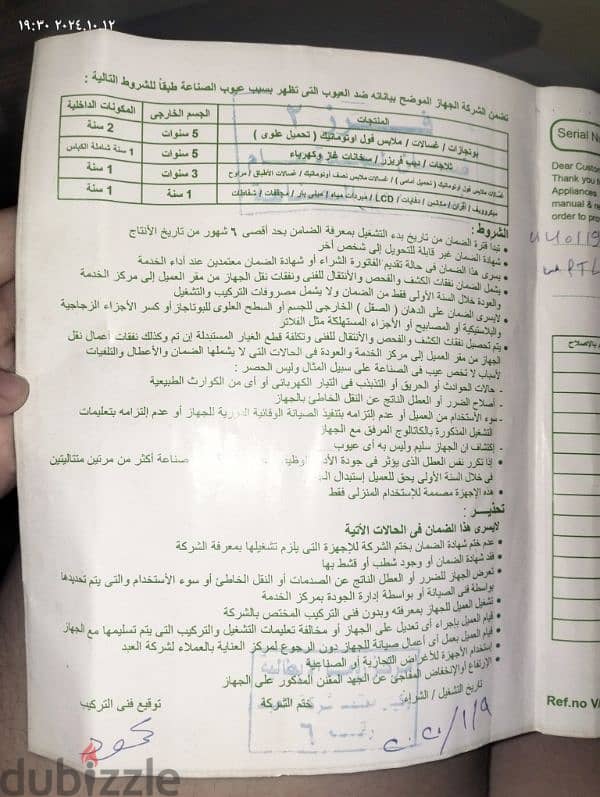 ١٩:٣٠ ٢٠٢٤.١٠.١٢
تضمن الشركة الجهاز الموضح بياناته ضد العيوب التى تظهر بسبب عيوب الصناعة طبقاً للشروط التالية :
المنتجات الجسم الخارجى المكونات الداخلية
بوتجازات / غسالات / ملابس فول أوتوماتيك ( تحميل علوى ) 5 سنوات 2 سنة
ثلاجات / ديب فريزر / سخانات غاز وكهرباء 5 سنوات 1 سنة شاملة الكباس
غسالات ملابس فول أوتوماتيك ( تحميل أمامى ) / غسالات ملابس نصف أوتوماتيك / غسالات الأطباق / مراوح 3 سنوات 1 سنة
ميكروويف / أفران / مكانس / دفايات / LCD / مبردات مياه / مينى بار / مجففات / شفاطات 1 سنة 1 سنة
الشروط :
تبدأ فترة الضمان من تاريخ بدء التشغيل بمعرفة الضامن بحد أقصى ٦ شهور من تاريخ الأنتاج
شهادة الضمان غير قابلة للتحويل إلى شخص أخر
يسرى هذا الضمان فى حالة تقديم الفاتورة الشراء أو شهادة الضمان معتمدين عند أداء الخدمة
يشمل الضمان نفقات الكشف والفحص والأنتقال للفنى ونفقات نقل الجهاز من مقر العميل إلى مركز الخدمة
والعودة خلال السنة الأولى فقط من الضمان ولا يشمل مصروفات التركيب والتشغيل
لايسرى الضمان على الدهان ( الصقل ) الخارجى للجسم أو السطح العلوى للبوتاجاز أو كسر الأجزاء الزجاجية
والبلاستيكية أو المصابيح أو الأجزاء المستهلكة مثل الفلاتر
يتم تحصيل نفقات الكشف والفحص والأنتقال للفنى وتكلفة قطع الغيار المستبدلة إن تم وكذلك نفقات أعمال نقل
الجهاز من مقر العميل إلى مركز الخدمة والعودة فى الحالات التى لا يشملها الضمان والأعطال والتلفيات
لأسباب لا تخص عيب فى الصناعة على سبيل المثال وليس الحصر :
- حالات الحوادث أو الحريق أو التذبذب فى التيار الكهربائى أو أى من الكوارث الطبيعية
- أصلاح الضرر أو العطل الناتج عن النقل الخاطئ بالجهاز
- سوء الأستخدام من العميل أو عدم إلتزامه بتنفيذ الصيانة الوقائية الدورية للجهاز أو عدم إلتزامه بتعليمات
التشغيل المذكورة بالكتالوج المرفق مع الجهاز
- إكتشاف ان الجهاز سليم وليس به أى عيوب
إذا تكرر نفس العطل الذى يؤثر فى جودة صناعة أكثر من مرتين متتاليتين
فى خلال السنة الأولى يحق للعميل إستبدال
هذه الإجهزة مصممة للإستخدام المنزلى فقط
تحذير :
لايسرى هذا الضمان فى الحالات الأتية
عدم ختم شهادة الضمان بختم الشركة للإجهزة التى يلزم تشغيلها بمعرفة الشركة
فقد شهادة الضمان أو وجود شطب أو قشط بها
تعرض الجهاز للضرر أو العطل الناتج عن الصدمات أو النقل الخاطئ أو سوء الأستخدام والتى يتم تحديدها
بواسطة فنى الصيانة أو بواسطة إدارة الجودة بمركز الخدمة
تشغيل العميل للجهاز بمعرفته وبدون فنى التركيب المختص بالشركة
قيام العميل بإجراء أى تعديل على الجهاز أو مخالفة تعليمات التشغيل والتركيب التى يتم تسليمها مع الجهاز
قيام العميل بعمل أى أعمال صيانة للجهاز دون الرجوع لمركز العناية بالعملاء لشركة العبد
إستخدام الأجهزة للأغراض التجارية أو الصناعية
الإرتفاع أوالإنخفاض المفاجئ عن الجهد المقنن المذكور على الجهاز
تاريخ التشغيل / الشراء ختم الشركة توقيع فنى التركيب
Serial N
Dear Custo
Thank you f
Appliances
manual & re
order to pro
Ref.no V/
فرز ٢
dubizzle